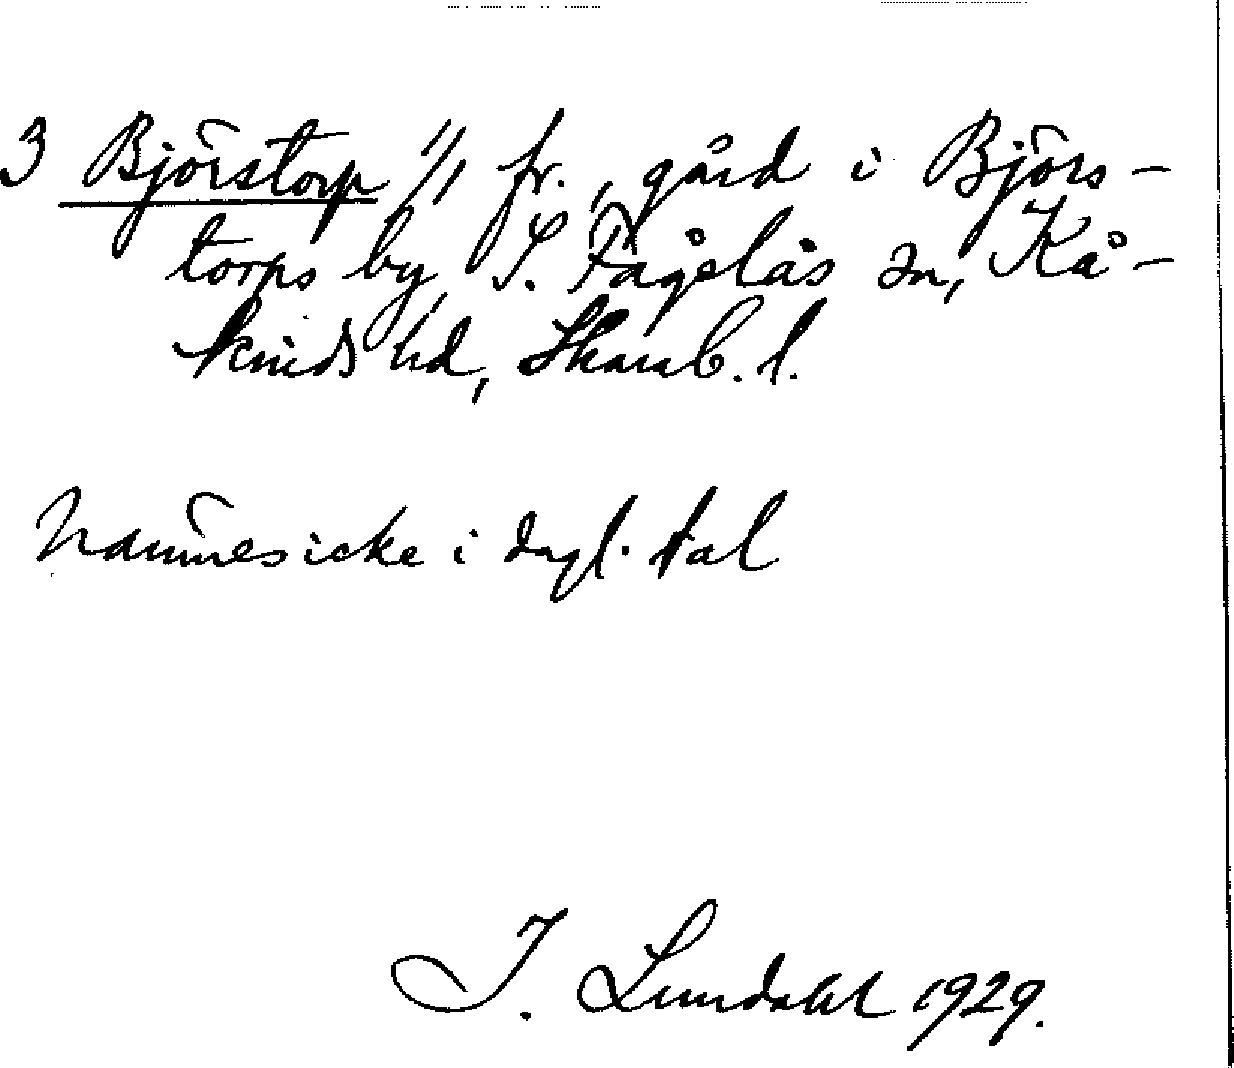 3 Björstorp 1/1 fr., gård i Björs-
torps by, S. Fågelås sn, Kå-
kinds hd, Skarab. l.
Nämnes icke i dagl. tal
J. Lundahl 1929.